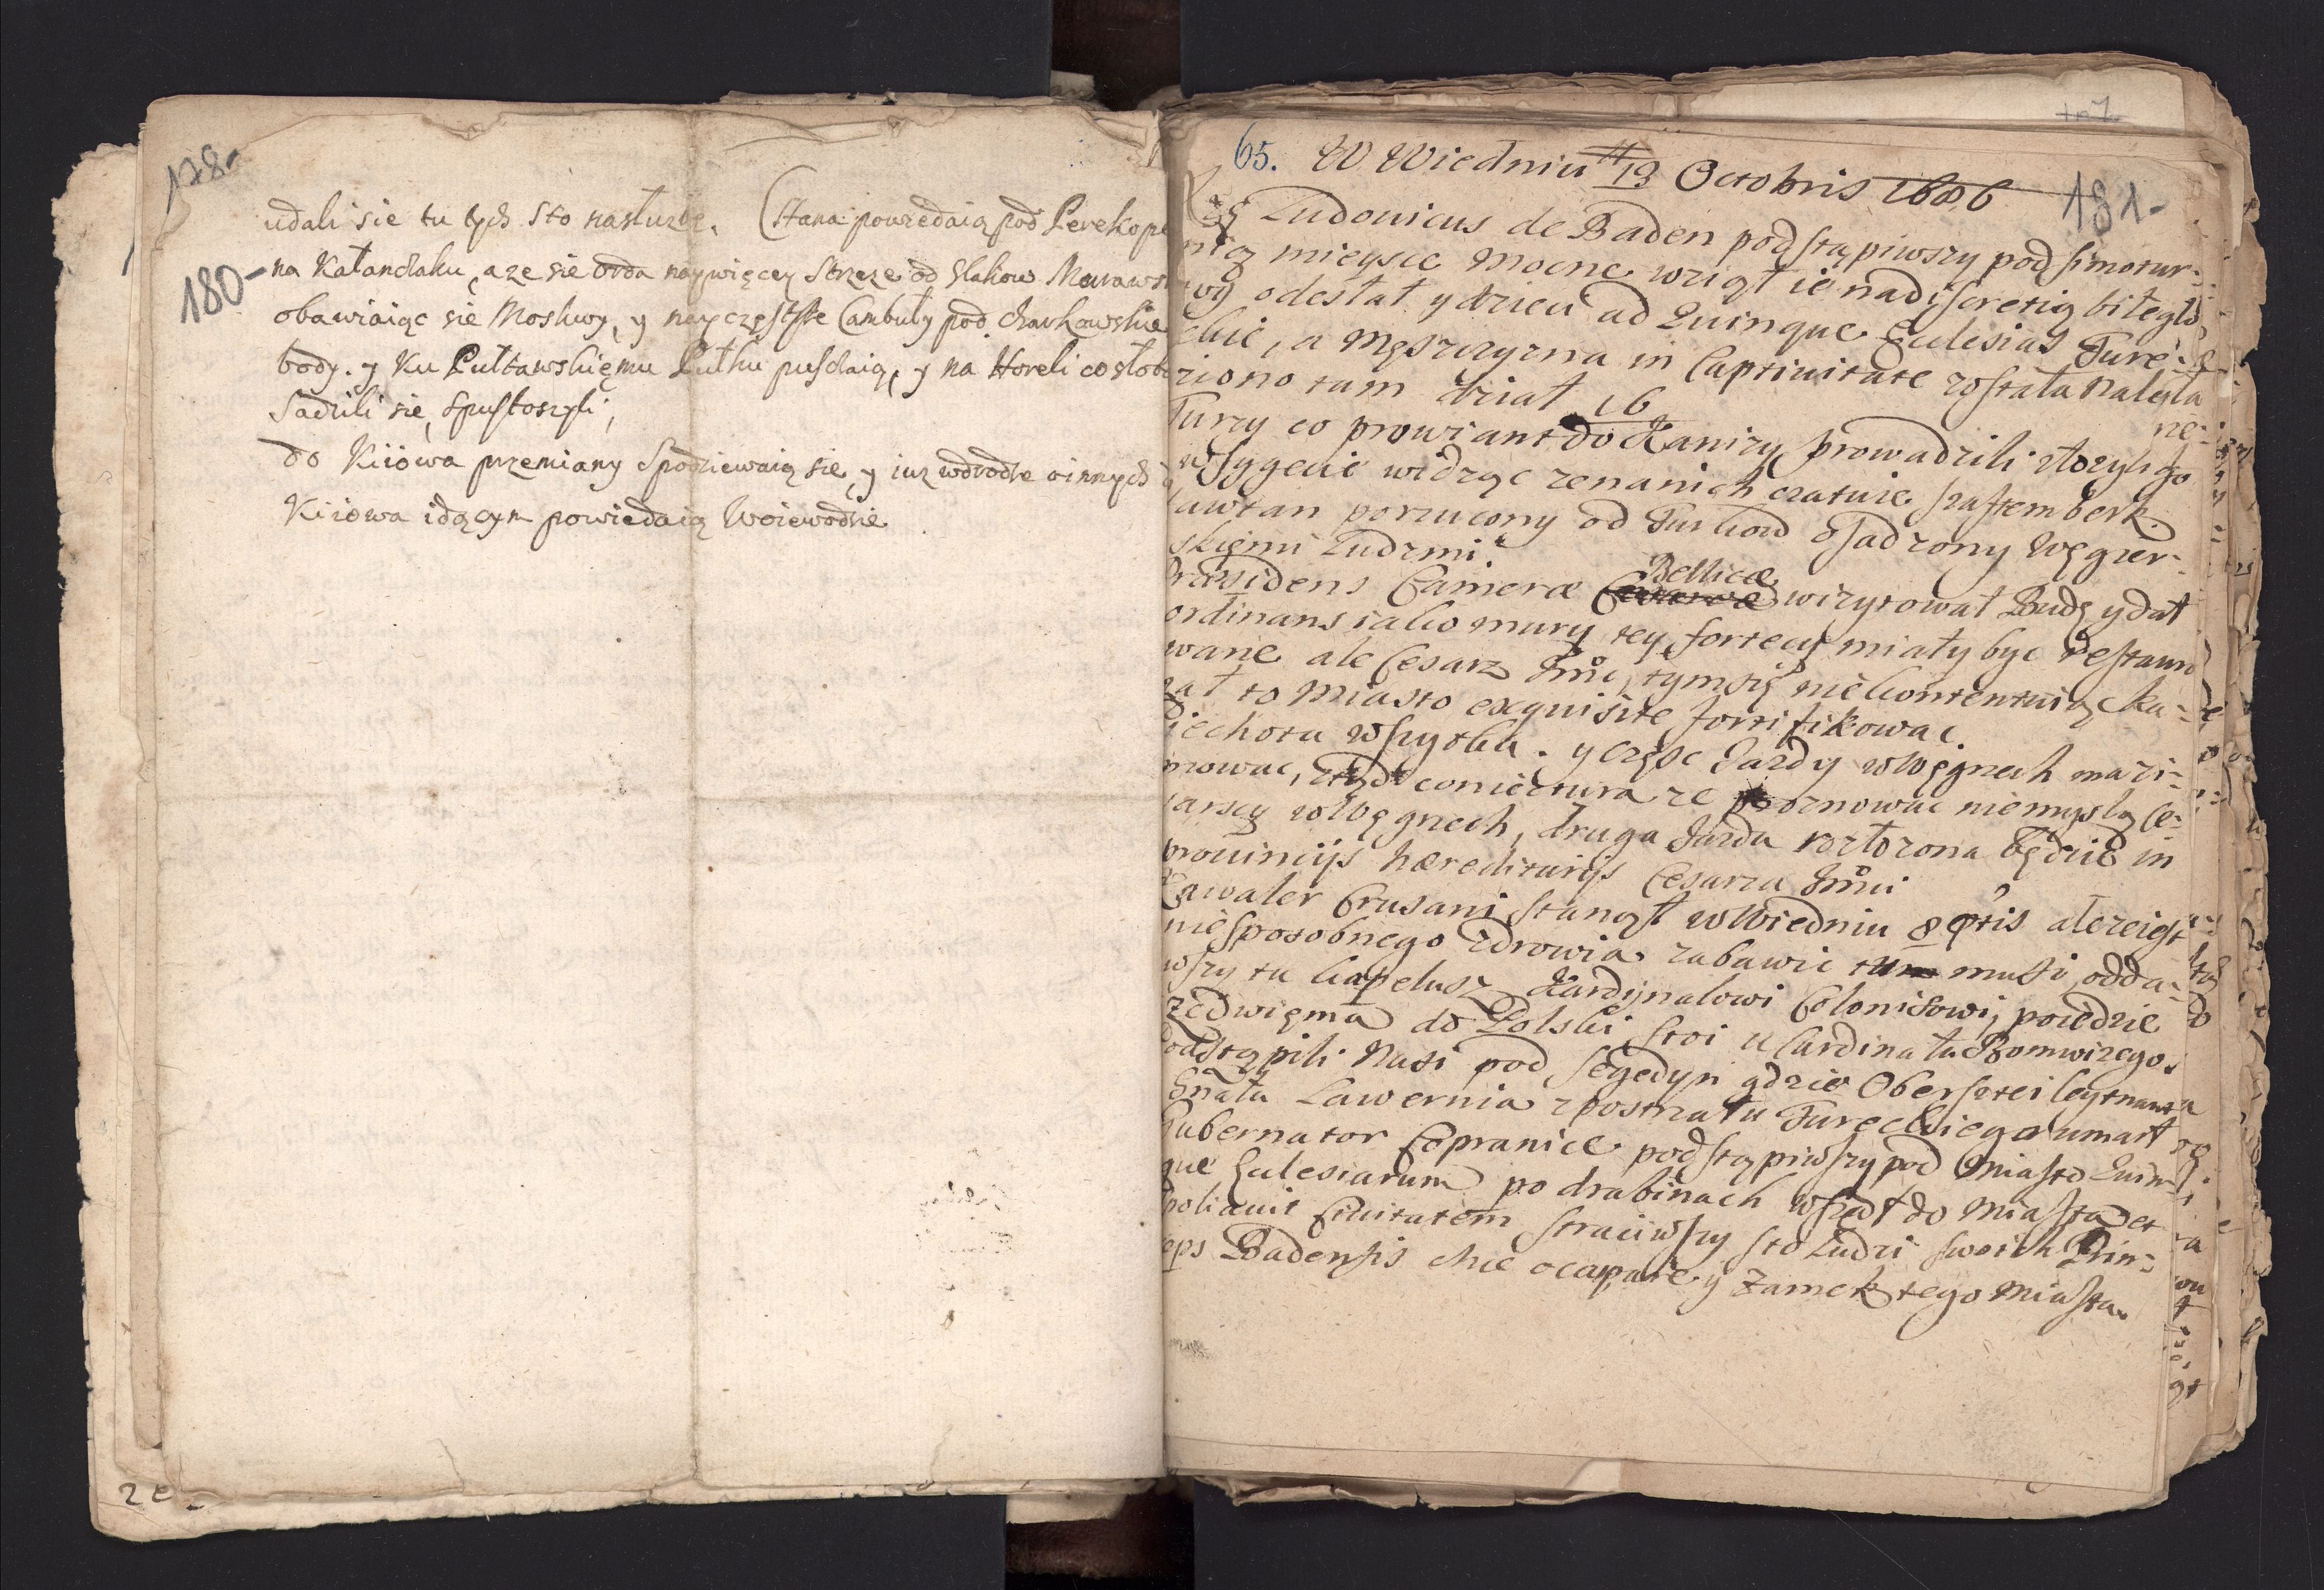 178-
180-
udali sie tu tych sto nasłuzbę. Hana powiedaią pod Perekope
na Kałanczaku, a ze sie orda naywięcey strzeze od szlakow Murawsk
obawiaiąc sie Moskwy, y nayczęstsze Cambuły pod Charkowskie
body. y ku Pułtawskiemu Pułku puszczaią, y na Horeli co słobo
sadzili się, spustoszyli,
do Kiiowa przemiany spodziewaią się, y iuz wdrodze oinnych
Kiiowa idącym powiedaią Woiewodzie
2
107
65. W Wiedniu 13 Octobris 1686
181-
Xżę Ludovicus de Baden podstąpiwszy pod simotur-
nią mieysce mocne wziął ie na discretią białegło
wy odesłał y dzieci ad Quinque Ecclesias Ture-
ckie, a Męszczyzna in Captivitate została nalezła
ziono tam dział 16
Turcy co prowiant do Kanizy prowadzili złozyli go
w Sygecie widząc ze na nich czatuie sztaremberk.
tawtan porzucony od Turkow osadzony Węgier-
skiemi Ludzmi
Præsidens Cameræ Bellicæ wizytował Budę y dał
ordinans iako mury tey fortecy miały byc restauro
wane ale Cesarz Jmć, tym się nie kontentuiąc ka-
zał to Miasto exquisite fortifikowac.
Piechota wszytka. y częsc Jazdy w Węgrzech ma zi-
mowac, ztąd coniectura ze proznowac niemyslą Ce-
sarscy w Węgrzech, druga Jazda rozłozona będzie in
provincijs hæreditarijs Cesarza Jmci
Cawaler Crusani stanął w Wiedniu 8 8bris ale ze iest
niesposobnego zdrowia zabawic tu musi, odda-
wszy tu kapelusz Kardynałowi Colonisowi, poiedzie
zedwiema do Polski stoi u Cardinała Bonwizego.
Podstąpili Nasi pod Segedyn gdzie Oberszterleytnant
Gnała Lawernia z postrzału Tureckiego umarł
Gubernator Copranice podstąpiwszy pod Miasto Quin-
que Ecclesiarum po drabinach wszedł do Miasta et
spoliavit Civitatem straciwszy sto Ludzi swoich Prin-
ceps Badensis chce occupare y Zamek tego Miasta.